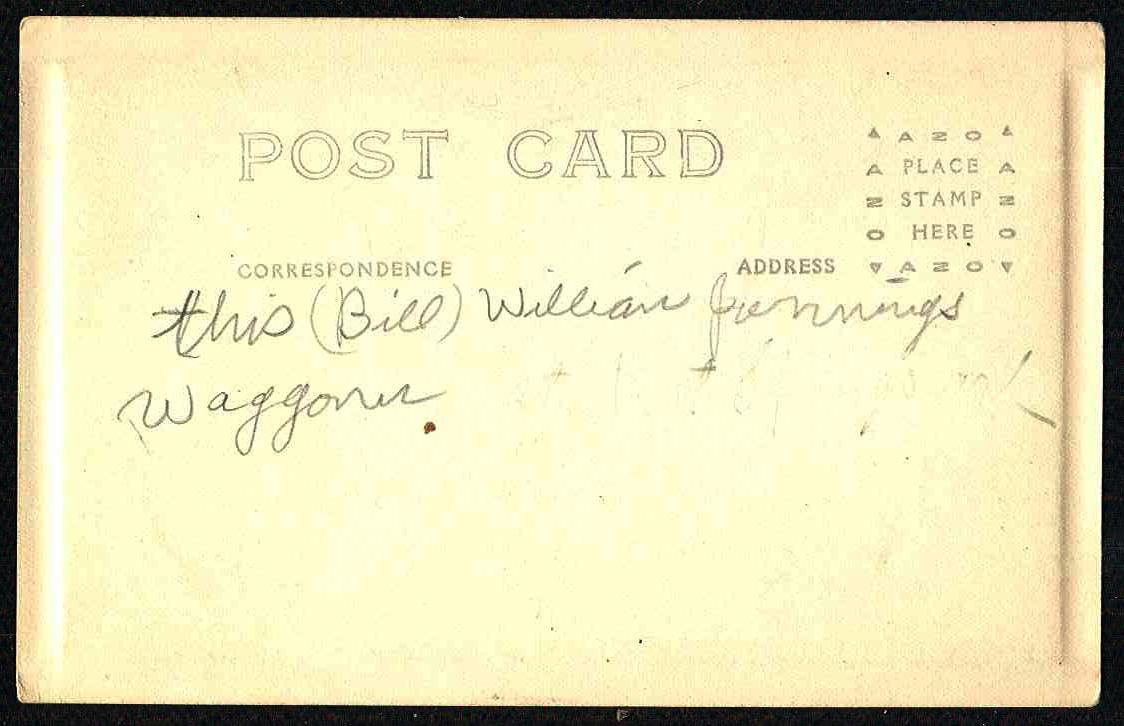 POST CARD
▲ A Z O ▲
A PLACE A
Z STAMP Z
O HERE O
▼ A Z O ▼
CORRESPONDENCE
ADDRESS
this (Bill) William Jennings
Waggoner